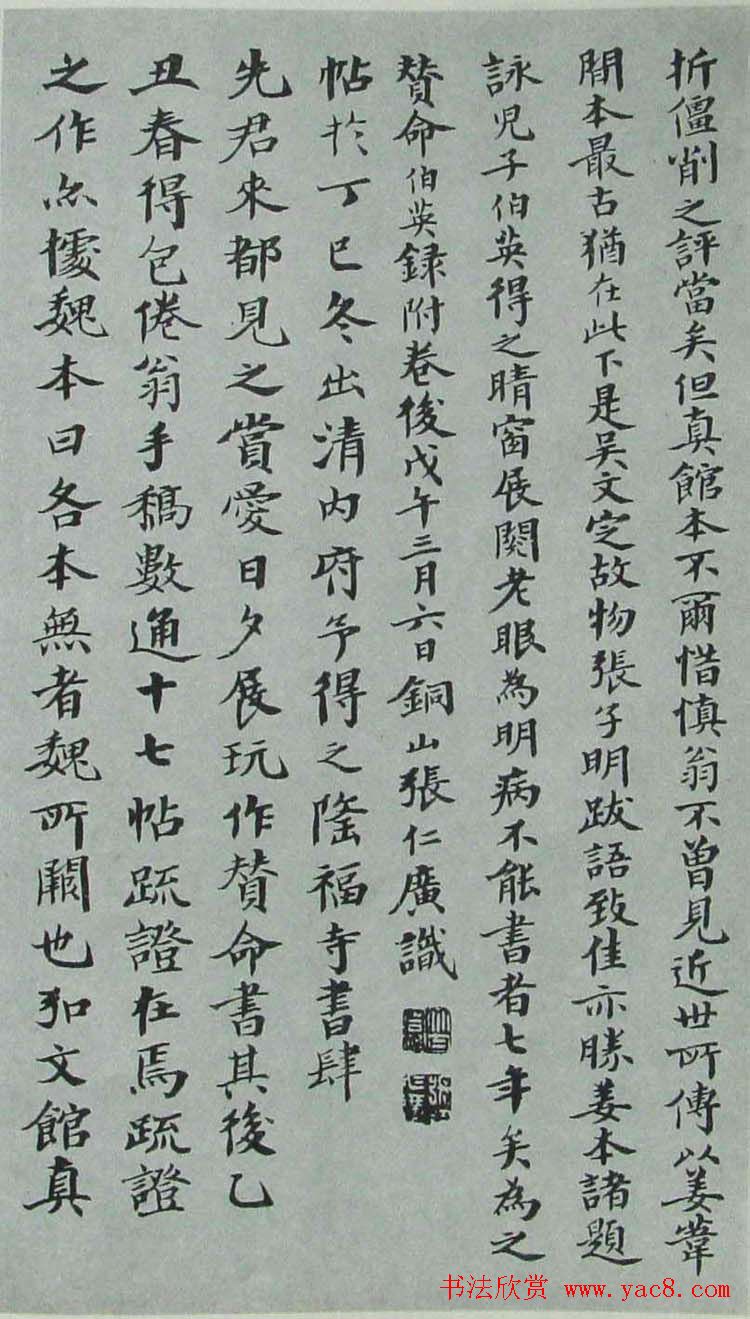 折僵削之評當矣但真館本不爾惜慎翁不曾見近世所傳以姜葦
間本最古猶在此下是吳文定故物張子明跋語致佳亦勝姜本諸題
詠兒子伯英得之晴窗展閱老眼為明病不能書者七年矣為之
贊命伯英錄附卷後戊午三月六日銅山張仁廣識
帖於丁巳冬出清內府予得之隆福寺書肆
先君來都見之賞愛日夕展玩作贊命書其後乙
丑春得包倦翁手稿數通十七帖疏證在焉疏證
之作亦據魏本曰各本無者魏所闕也弘文館真
书法欣赏 www.yac8.com